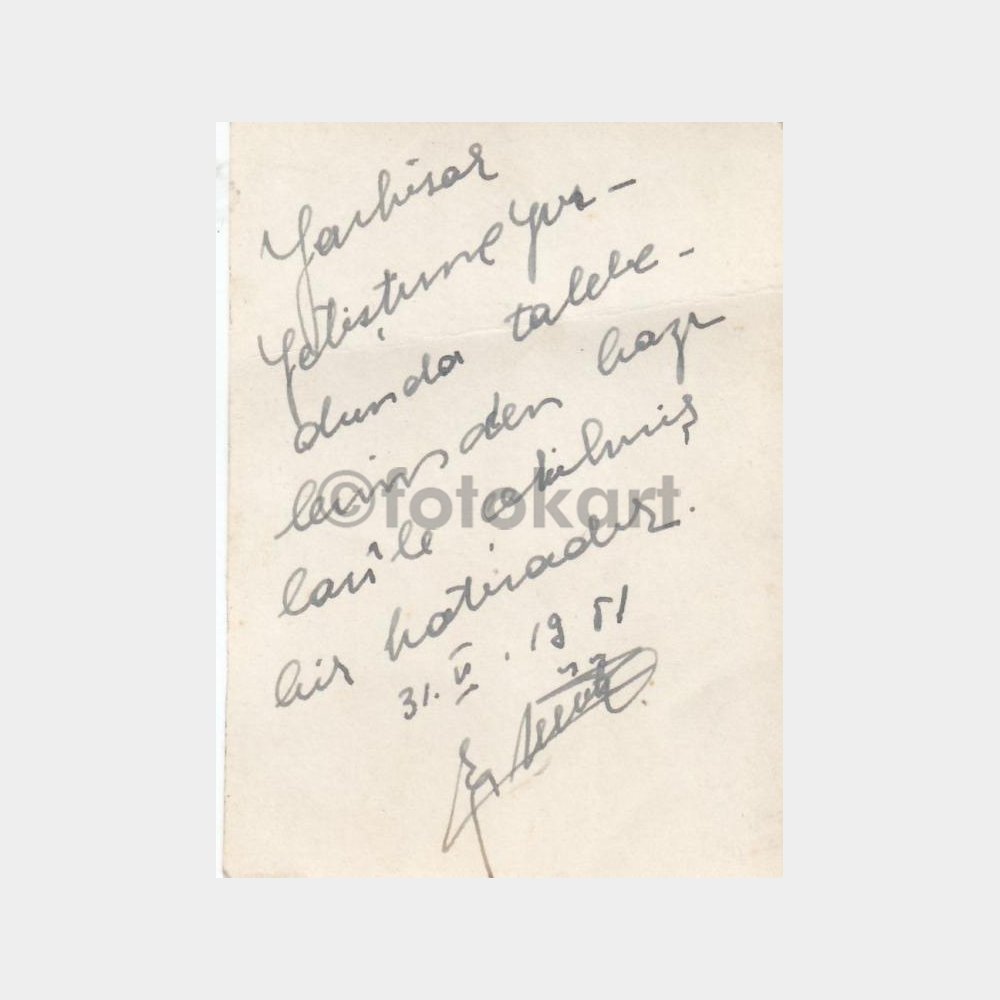 Yarhisar
Yetiştirme Yur-
dunda talebe-
lerimden bazı
ları ile çekilmiş
bir hatıradır.
31.V.1951
©fotokart